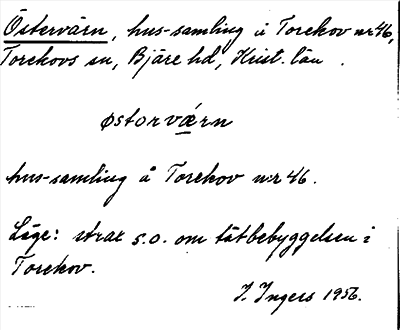 Östervärn, hus-samling å Torekov nr 46,
Torekovs sn, Bjäre hd, Krist. län.
østorværn
hus-samling å Torekov nr 46.
Läge: strax s.o. om tätbebyggelsen i
Torekov.
I. Ingers 1956.